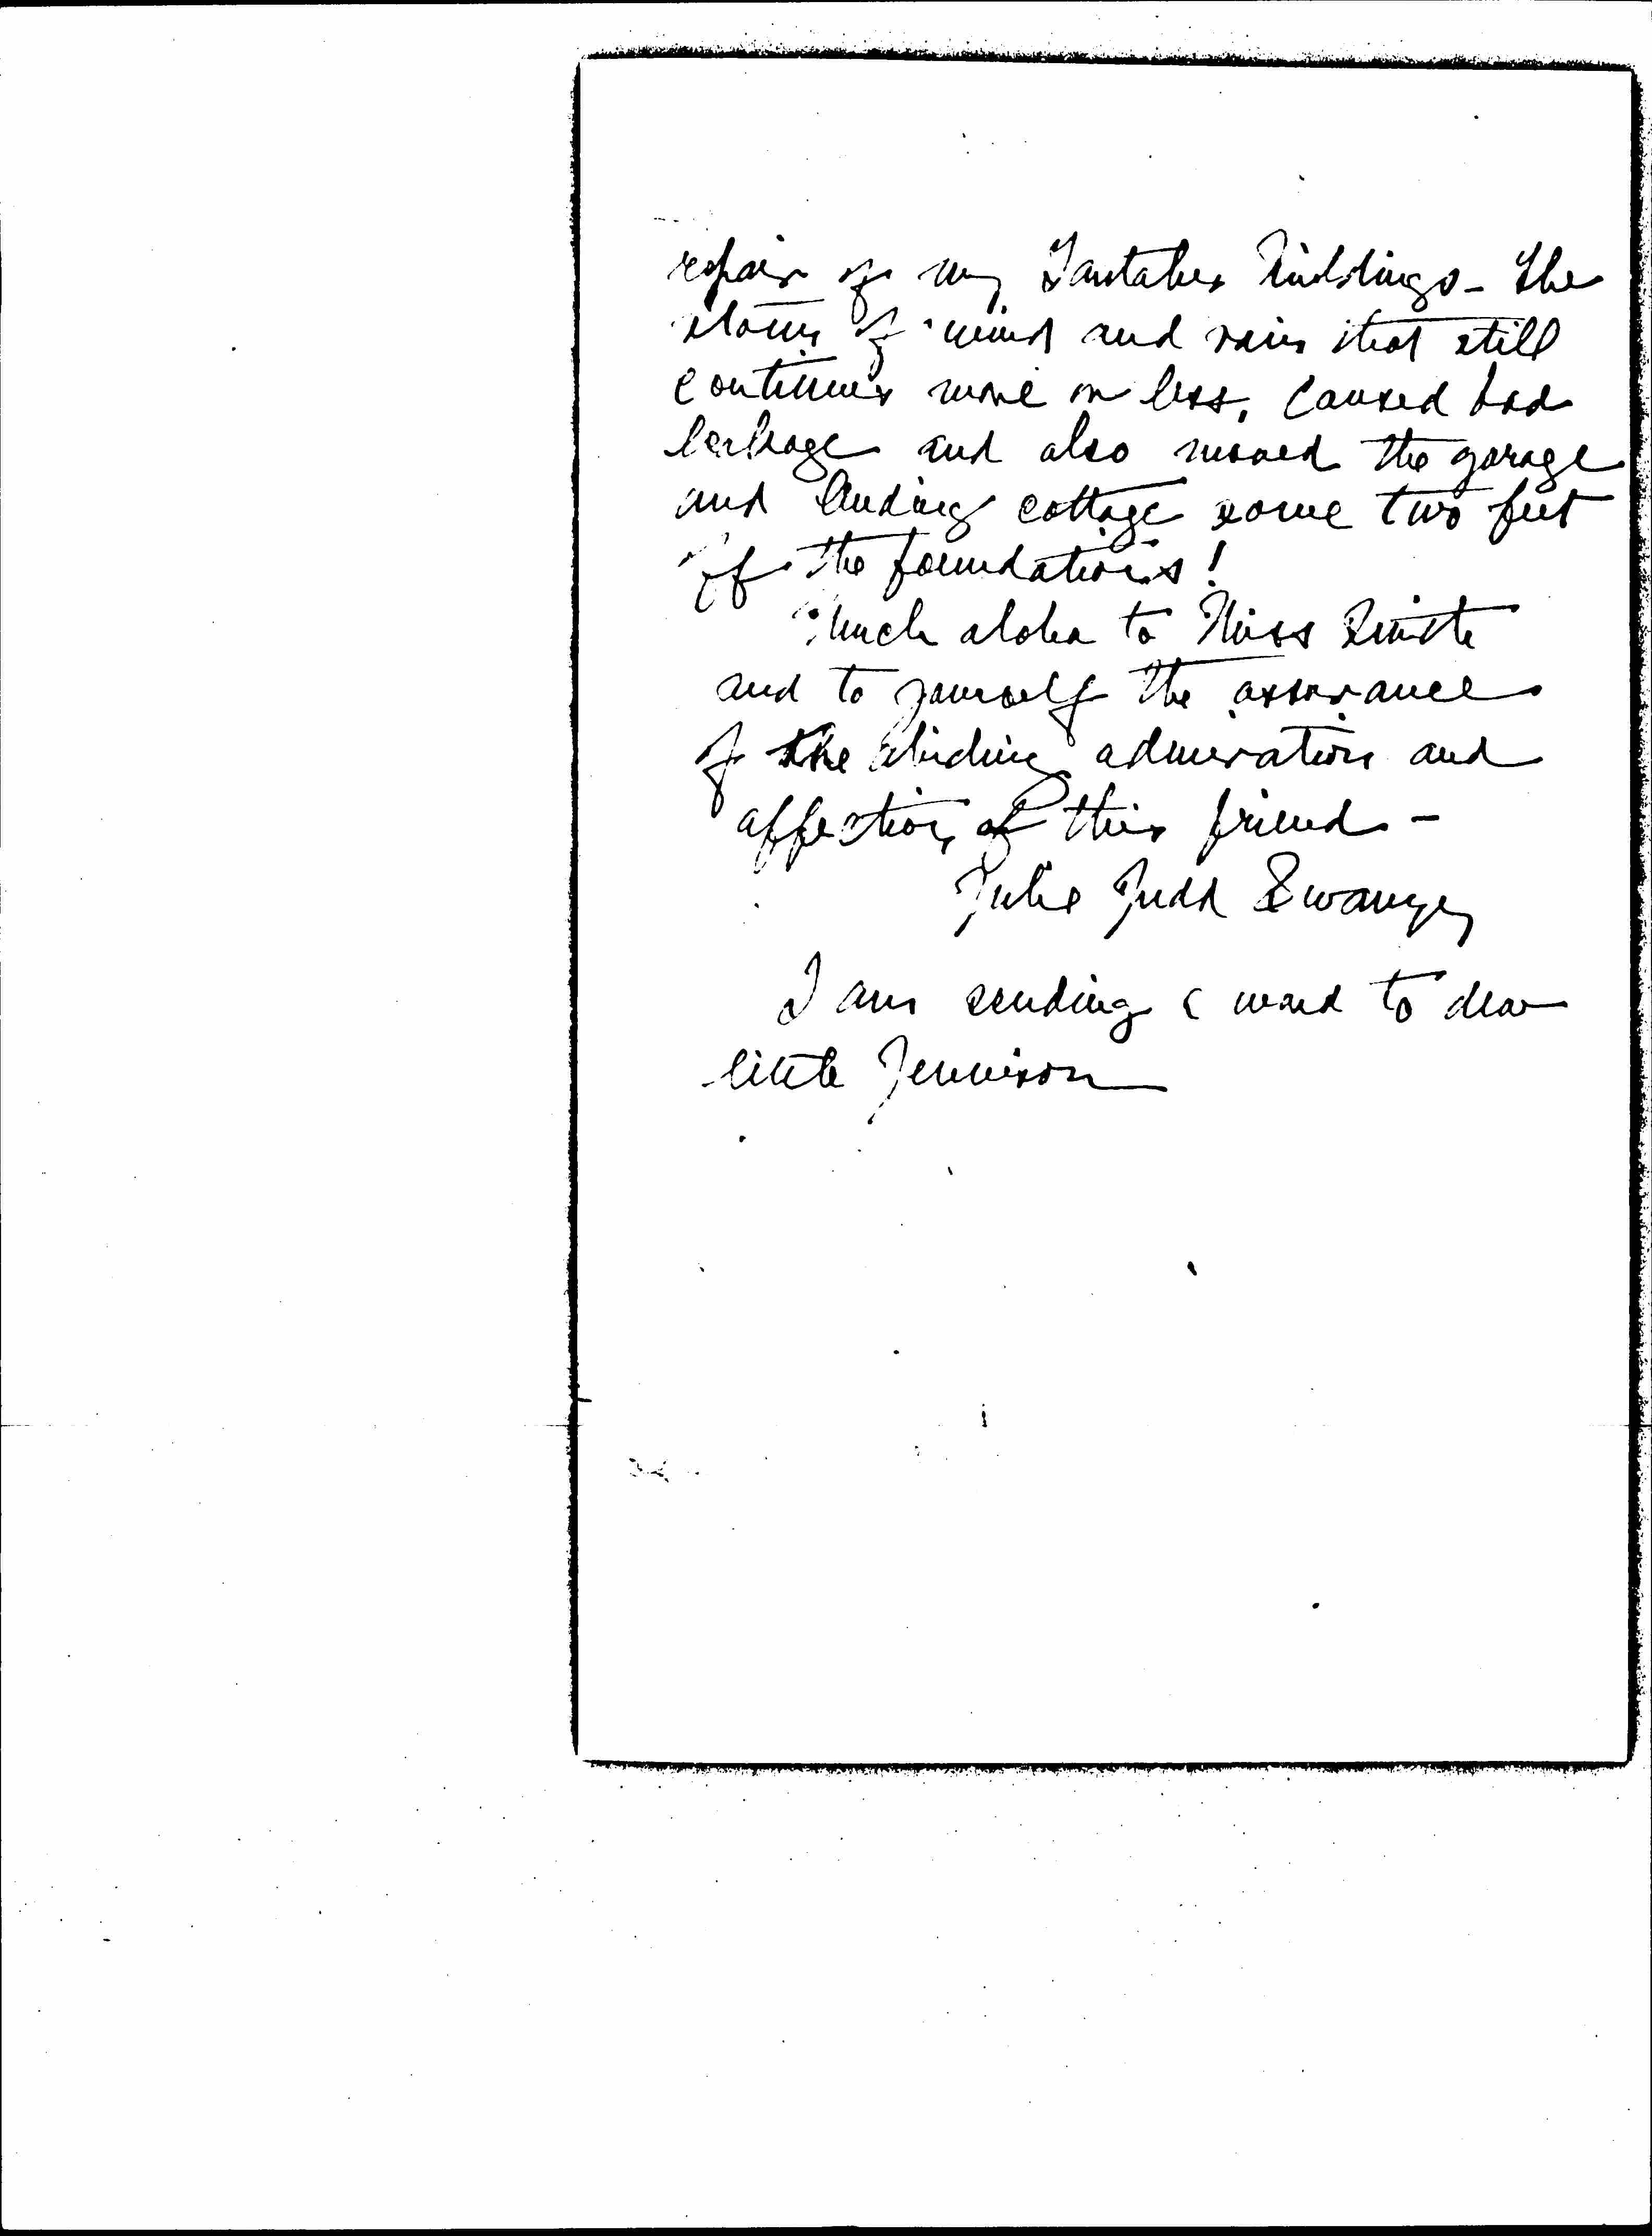 repair of my Tantalus buildings - The
storm of wind and rain that still
continues more or less, caused bad
leakage and also moved the garage
and cottage some two feet
off the foundations!
Much aloha to Miss
and to yourself the assurance
of the abiding admiration and
affection of this friend -
Julie Judd Swanzy
I am sending a word to dear
little Jennison